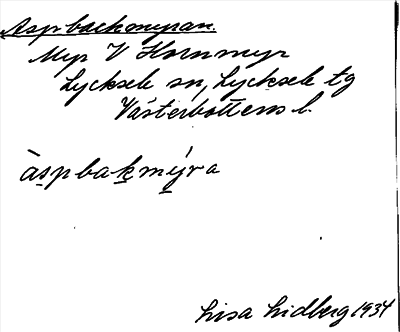 Aspbackmyran.
Myr V Hornmyr
Lycksele sn, Lycksele tg
Västerbottens l.
àspbak̠mýra
Lisa Lidberg 1934